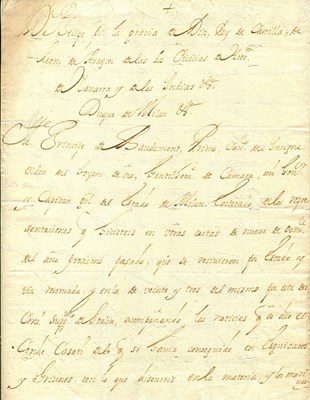 Dn Felipe por la gracia de Dios, Rey de Castilla, de
Leon, de Aragon de las dos Cicilias de Hier.m
de Navarra y de las Indias &a.
Duque de Milan &a
Illre
Principe de Vaudemont, Primo, Cavo. del Insigne
orden del toyson de oro, Gentilhom. de Camara, mi Govor
y Capitan Gl. del Estado de Milan. Enterado, de las repre
sentaciones q hicisteis en vras cartas de nueve de octu.e
del año proximo pasado, que se recivieron por Estado y
via reservada, y en la de veinte y tres del mismo por esta del
Cons.o Supr.o de Italia, acompañando las noticias q os dio el
Conde Casati de lo q se havia conseguido en Esguizaros
y Grisones con lo que discurris en la materia y los